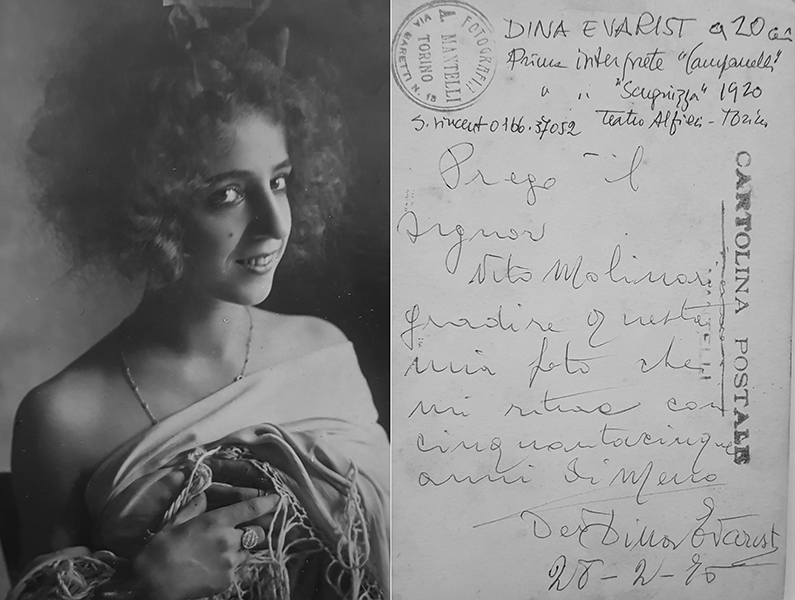 FOTOGRAFIA
A. MANTELLI
TORINO
VIA BARETTI N. 15
DINA EVARIST a 20
Prima interprete "Campanelli"
" " "Scugnizza" 1920
S. Vincent 0166.37052 Teatro Alfieri - Torino
Prego il
signor
Vito Molinari
gradire questa
mia foto che
mi ritrae con
cinquantacinque
anni di meno
Dina Evarist
28-2-
CARTOLINA POSTALE
MANTELLI